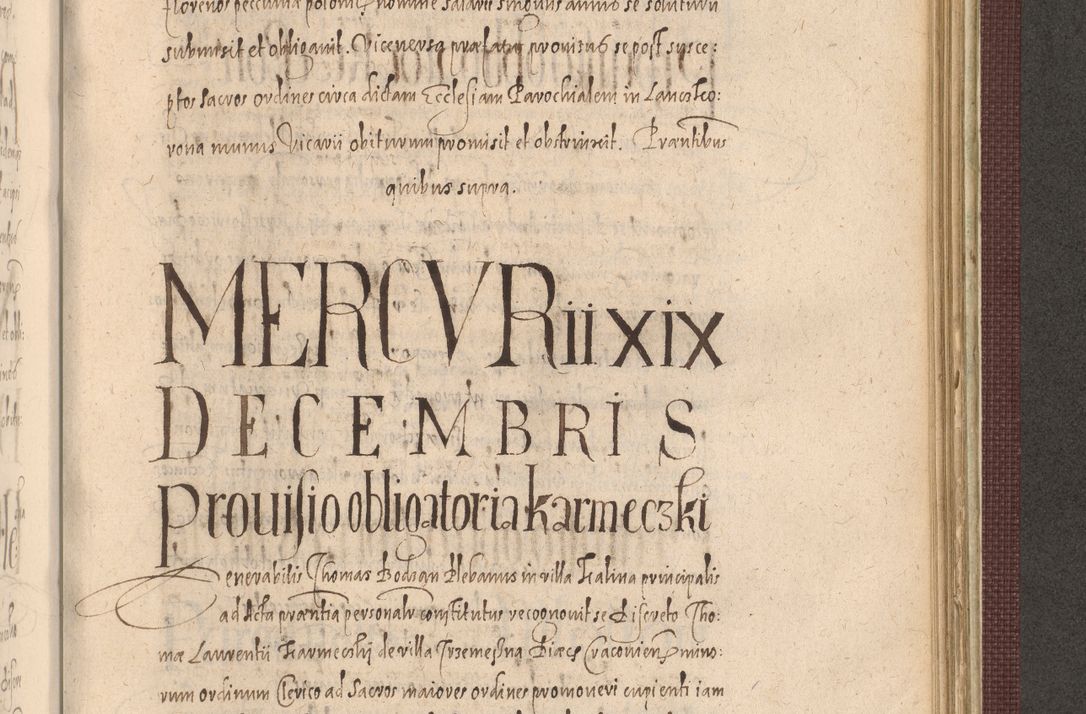 florenos peccunia poloni, nomine salarii singulis annis se soluturu
submisit et obligavit. Viceversa præfatus provisus se post susce:
ptos sacros ordines circa dictam Ecclesiam Parochialem in Lanczko:
rona munus Vicarii obiturum promisit et obstrinxit. Præntibus
quibus supra.
MERCVRii XIX
DECEMBRIS
Provisio obligatoria karmeczki
Venerabilis Thomas Bodzan Plebanus in villa Kalina principalis
ad Acta præntia personalr constitutus recognovit se Discreto Tho:
mæ Laurentii Karmeczkij de villa Trzemesna Diæcs Cracovien minо:
rum ordinum Clerico ad Sacros maiores ordines promoveri cupienti iam